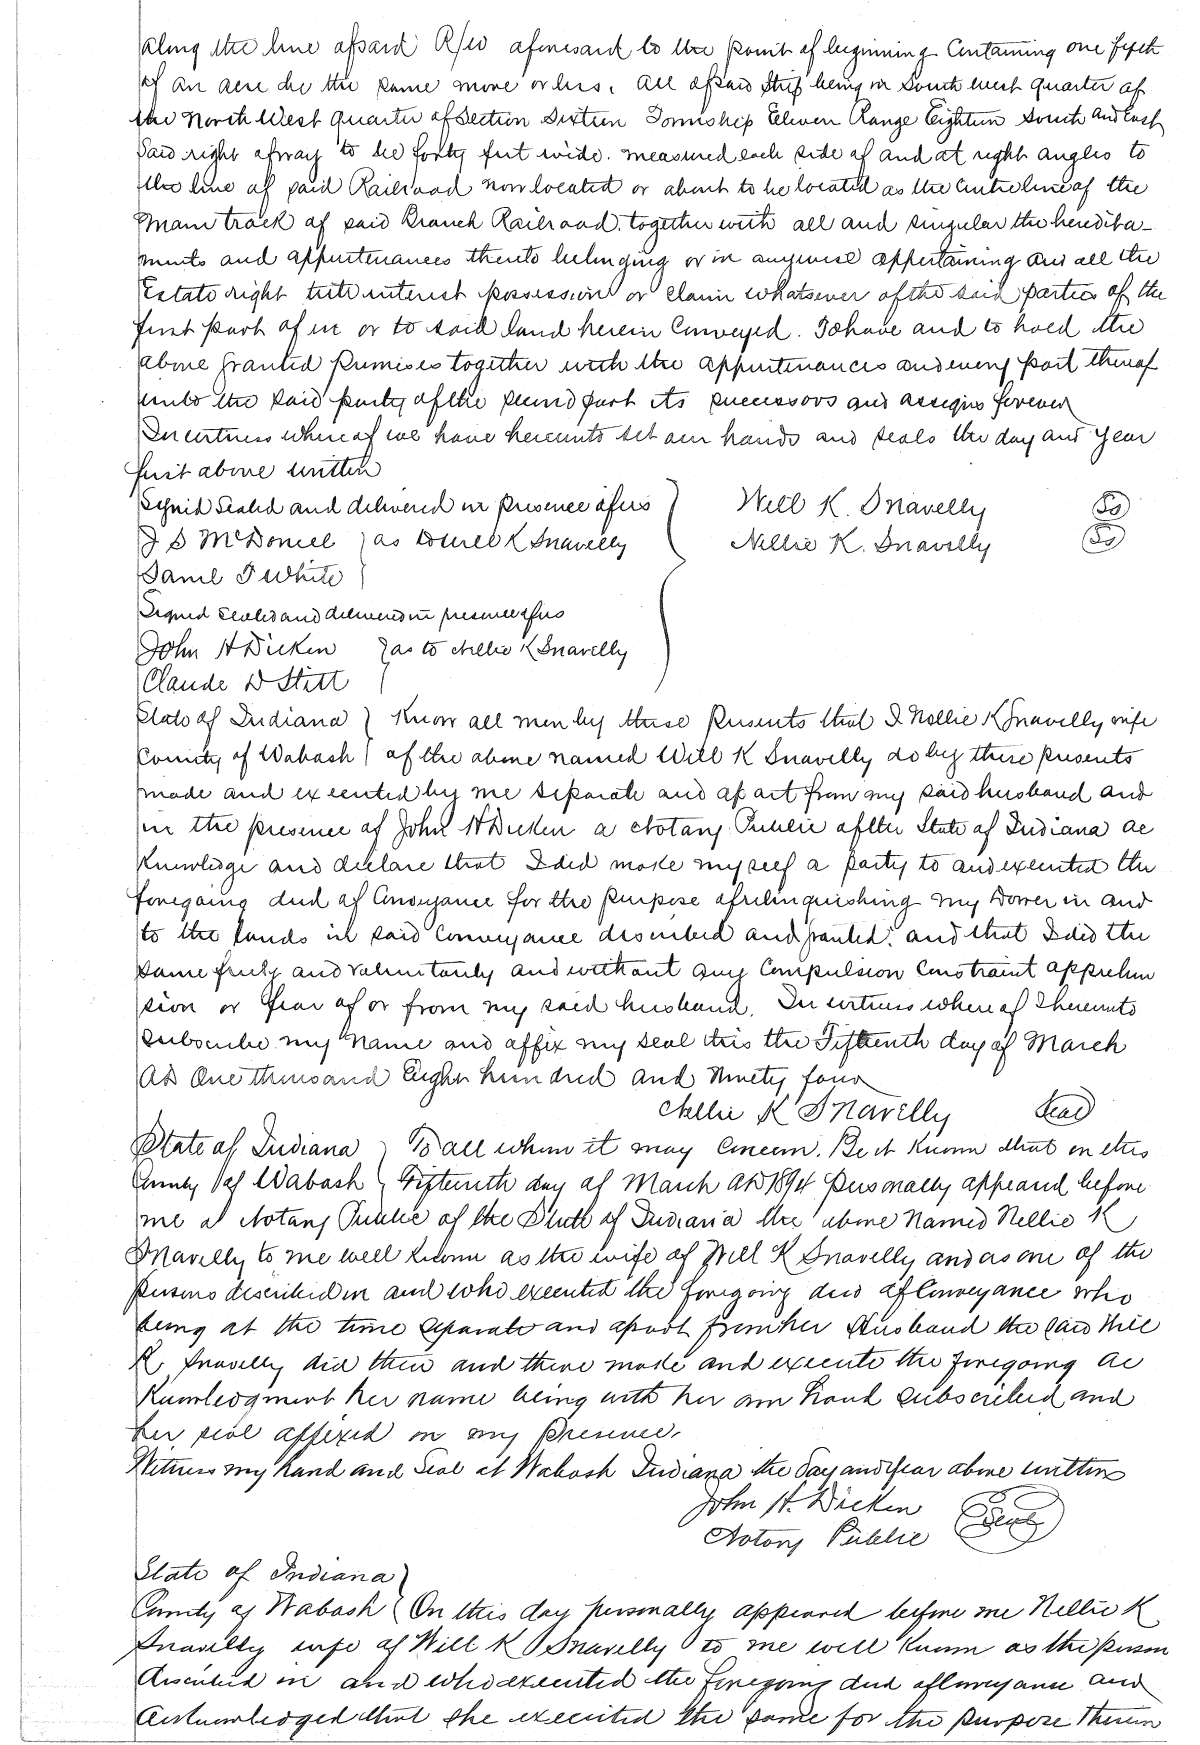 along the line of said R/W aforesaid to the point of beginning Containing one fifth
of an acre be the same more or less, all of said strip being in South west quarter of
the North West quarter of Section Sixteen Township Eleven Range Eighteen South and East
Said right of way to be forty feet wide. measured each side of and at right angles to
the line of said Railroad now located or about to be located as the Centre line of the
Main track of said Branch Railroad, together with all and singular the heredita-
ments and appurtenances thereto belonging or in anywise appertaining and all the
Estate right title interest possession or claim whatsoever of the said parties of the
first part of in or to said land herein Conveyed. To have and to hold the
above granted premises together with the appurtenances and every part thereof
unto the said party of the second part its successors and assigns forever
In witness whereof we have hereunto set our hands and seals the day and year
first above written
Signed Sealed and delivered in presence of us } Will K. Snavelly
J S McDoniel } as to Will K Snavelly Nellie K. Snavelly
Saml T White }
Signed sealed and delivered in presence of us
John H Dicken } as to Nellie K Snavelly
Claude D Stitt
State of Indiana } Know all men by these Presents that I Nellie K Snavelly wife
County of Wabash } of the above named Will K Snavelly do by these presents
made and executed by me separate and apart from my said husband and
in the presence of John H Dicken a Notary Public of the State of Indiana ac
knowledge and declare that I did make myself a party to and executed the
foregoing deed of Conveyance for the purpose of relinquishing my Dower in and
to the lands in said Conveyance described and granted, and that I did the
same freely and voluntarily and without any Compulsion Constraint apprehen
sion or fear of or from my said husband. In witness whereof I hereunto
subscribe my name and affix my seal this the Fifteenth day of March
AD One thousand Eight hundred and Ninety four
Nellie K Snavelly Seal
State of Indiana } To all whom it may Concern. Be it Known that on this
County of Wabash } Fifteenth day of March AD 1894 personally appeared before
me a Notary Public of the State of Indiana the above Named Nellie K
Snavelly to me well known as the wife of Will K Snavelly and as one of the
persons described in and who executed the foregoing deed of Conveyance who
being at the time separate and apart from her Husband the said Will
K Snavelly did then and there make and execute the foregoing Ac
Knowledgment her name being with her own hand subscribed and
her seal affixed in my presence.
Witness my hand and Seal at Wabash Indiana the day and Year above written
John H. Dicken
Notary Public Seal
State of Indiana }
County of Wabash } On this day personally appeared before me Nellie K
Snavelly wife of Will K Snavelly to me well known as the person
described in and who executed the foregoing deed of Conveyance and
acknowledged that she executed the same for the purpose therein